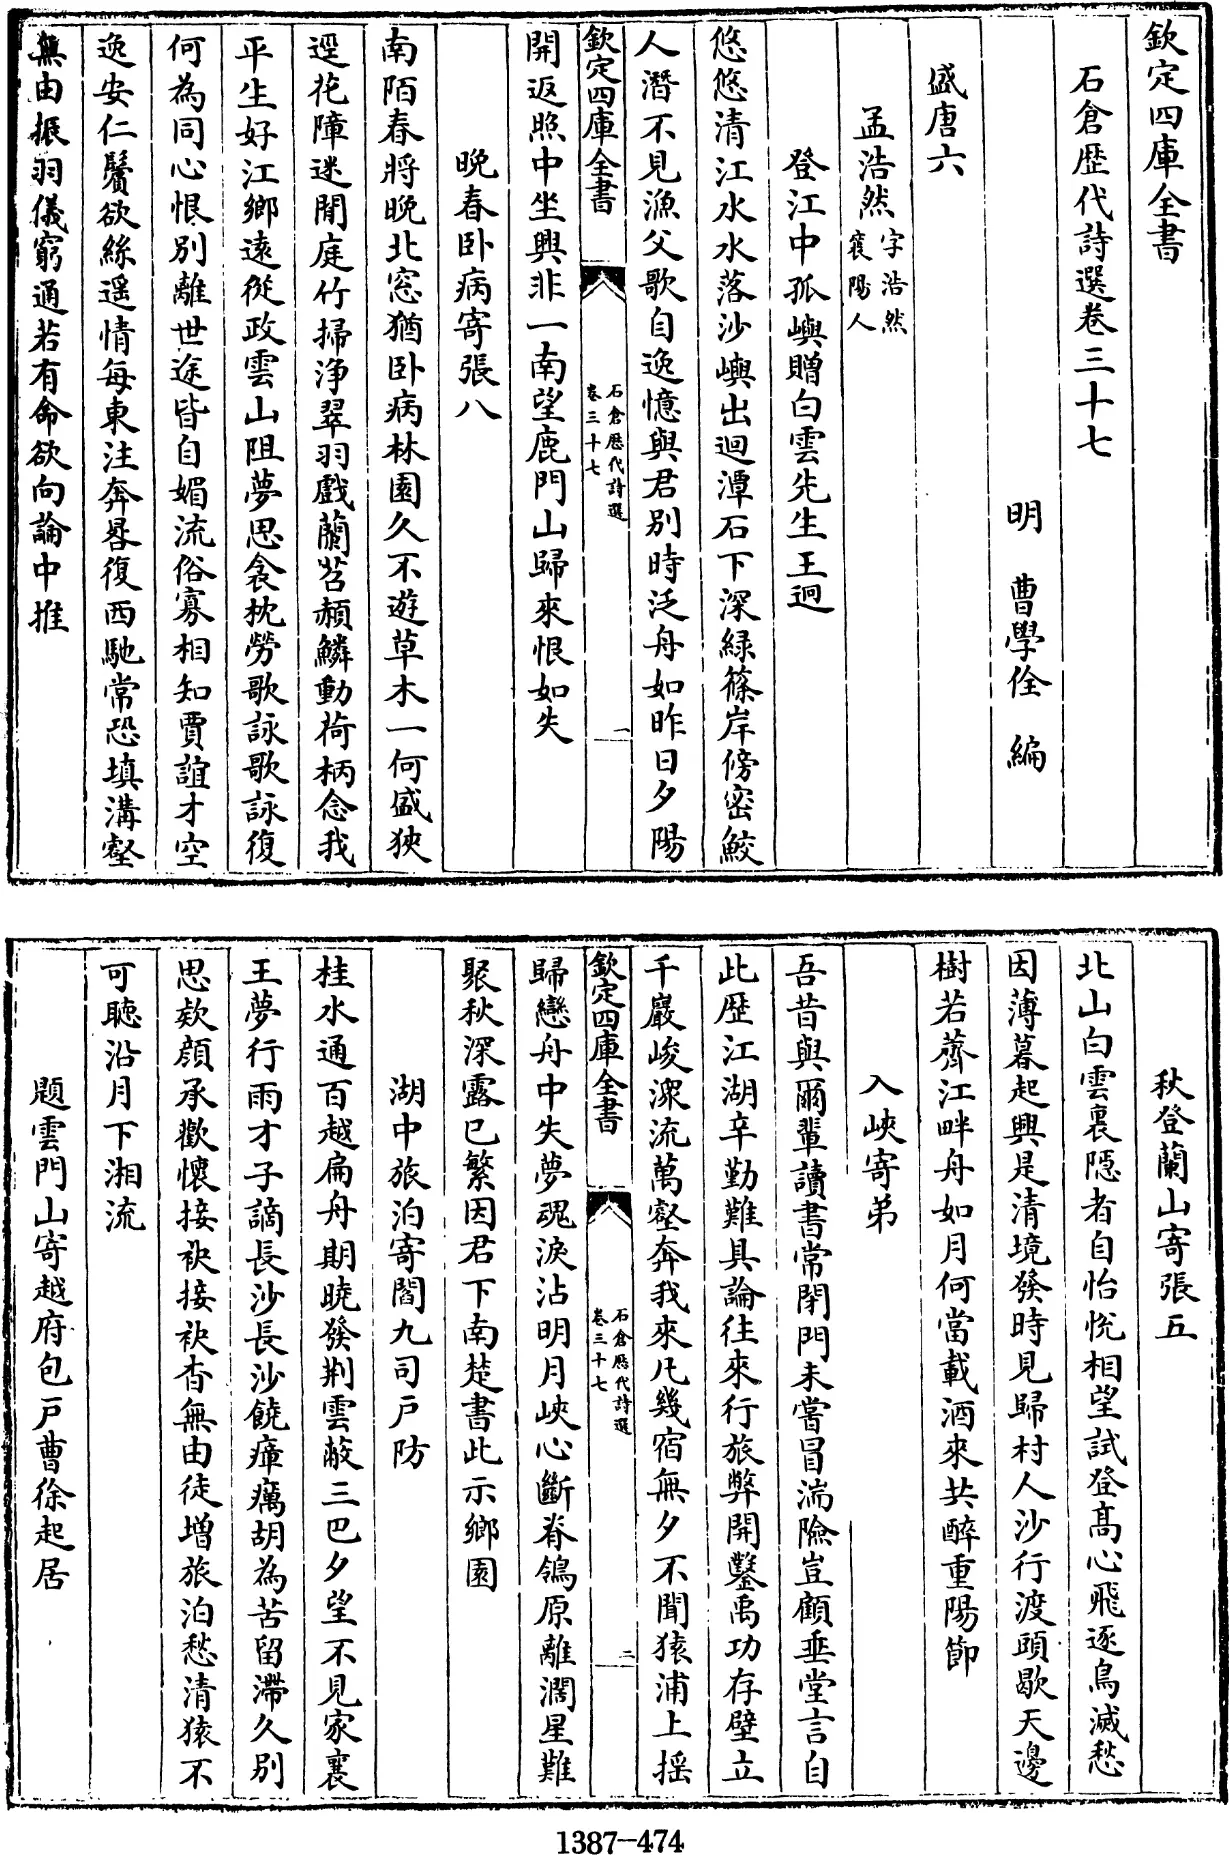 欽定四庫全書
石倉歷代詩選卷三十七
明 曹學佺 編
盛唐六
孟浩然 字浩然襄陽人
登江中孤嶼贈白雲先生王迥
悠悠清江水水落沙嶼出迴潭石下深緑篠岸傍密鮫
人潛不見漁父歌自逸憶與君别時泛舟如昨日夕陽
欽定四庫全書 石倉歷代詩選卷三十七 一
開返照中坐興非一南望鹿門山歸來恨如失
晚春卧病寄張八
南陌春將晚北窓猶卧病林園久不遊草木一何盛狹
逕花障迷閒庭竹掃浄翠羽戲蘭苕赬鱗動荷柄念我
平生好江鄉遠從政雲山阻夢思衾枕勞歌詠歌詠復
何為同心恨别離世途皆自媚流俗寡相知賈誼才空
逸安仁鬢欲絲遥情每東注奔晷復西馳常恐填溝壑
無由振羽儀窮通若有命欲向論中推
秋登蘭山寄張五
北山白雲裏隱者自怡恱相望試登髙心飛逐鳥滅愁
因薄暮起興是清境發時見歸村人沙行渡頭歇天邊
樹若薺江畔舟如月何當載酒來共醉重陽節
入峽寄弟
吾昔與爾輩讀書常閉門未嘗冒湍險豈顧垂堂言自
此歷江湖辛勤難具論往來行旅弊開鑿禹功存壁立
千巖峻潨流萬壑奔我來凡幾宿無夕不聞猿浦上揺
欽定四庫全書 石倉歷代詩選卷三十七 二
歸戀舟中失夢魂淚沾明月峽心斷脊鴒原離濶星難
聚秋深露已繁因君下南楚書此示鄉園
湖中旅泊寄閻九司戸防
桂水通百越扁舟期曉發荆雲蔽三巴夕望不見家襄
王夢行雨才子謫長沙長沙饒瘴癘胡為苦留滯久别
思欵顔承歡懷接袂接袂杳無由徒増旅泊愁清猿不
可聽沿月下湘流
題雲門山寄越府包戸曹徐起居
1387-474